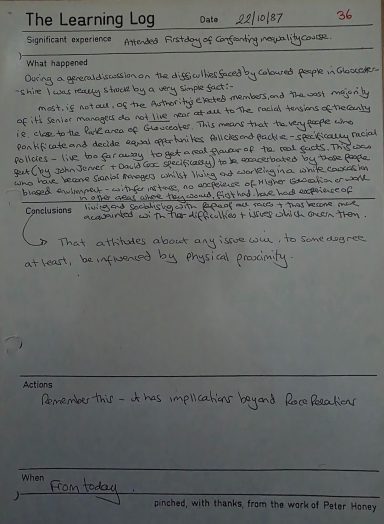 The Learning Log Date 22/10/87 36
Significant experience Attended First day of Confronting inequality course.
What happened
During a general discussion on the difficulties faced by coloured people in Gloucester-
-shire I was really struck by a very simple fact:-
most, if not all, of the Authority's elected members, and the vast majority
of it's senior managers do not live near at all to the racial tensions of the County
ie. close to the area of Gloucester. This means that the very people who
pontificate and decide equal opportunities policies and practice - specifically racial
policies - live too far away to get a real flavour of the real facts. This was
(by John Jenver + David Cox specifically) to be exacerbated by those people
who have become senior managers whilst living and working in a white caucasian
biased environment - with for instance, no experience of Higher Education or work
in other areas where they would, first hand, have had experience of
living and socialising with people of all races + thus become more
acquainted with the difficulties + issues which concern them.
Conclusions
That attitudes about any issue will, to some degree
at least, be influenced by physical proximity.
Actions
Remember this - it has implications beyond Race Relations
When From today.
pinched, with thanks, from the work of Peter Honey